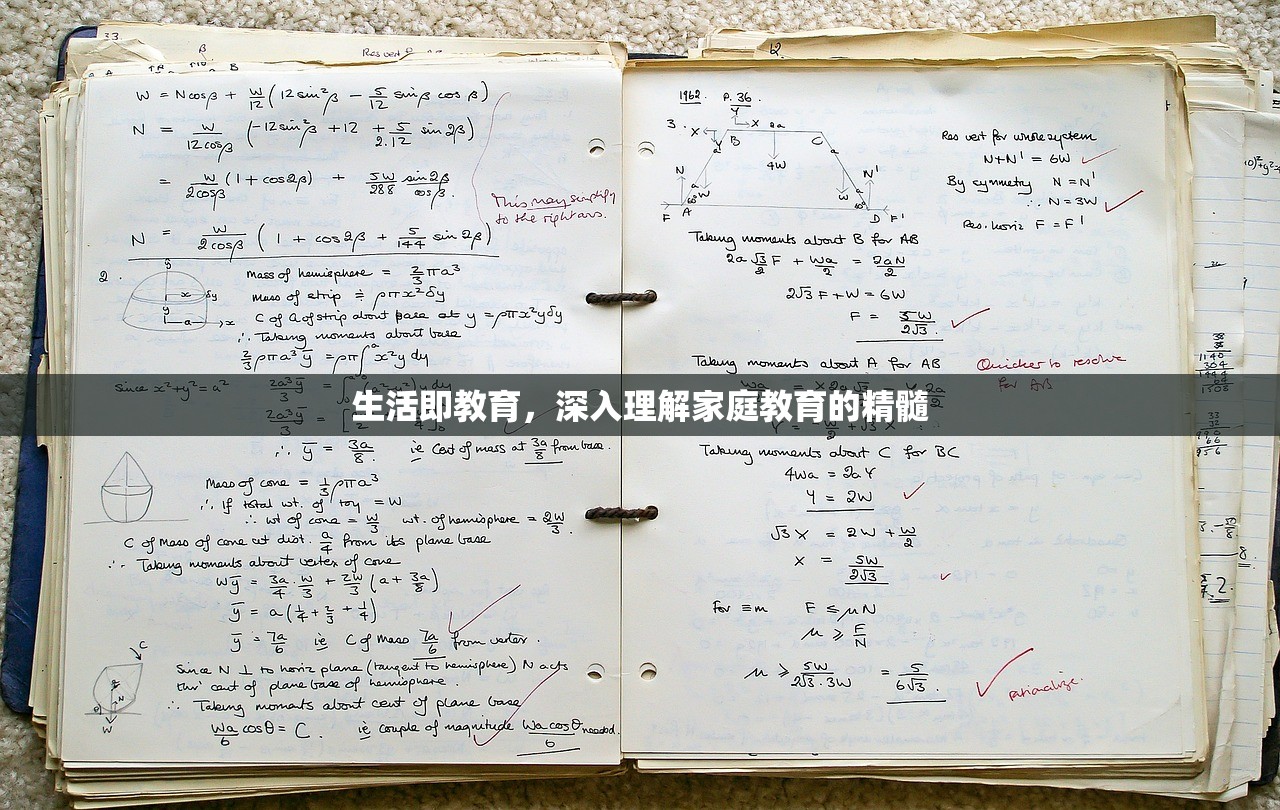 33.
β
Res vert
B
W = N cos β + W/12 (12 sin²β − 5/12 sin β cos β)
N = W/12 cos β (−12 sin²β + 12 + 5/2.12 sin 2β)
= W/2cos β (1 + cos 2β) + 5W/288 sin 2β/cos β.
This may simplify
to the right ans.
N = W/2cos β (1 + cos 2β + 5/144 sin 2β)
2.
Mass of hemisphere = 2/3 πa³
mass of strip ≑ ρπx²δy
C of G of strip about base at y = ρπx²yδy
∴ Taking moments about base
2/3 ρπa³ȳ = ρπ∫x²y dy
since x²+y² = a²
2a³ȳ/3 = ∫(a²−y²)y dy
生活即教育，深入理解家庭教育的精髓
2a³ȳ/3 =
∴ ȳ = 3a/8 ie Cent of mass at 3a/8 from base.
Mass of cone = 1/3 ρπa³
∴ If total wt. of toy = W
∴ wt of cone = W/3 wt. of hemisphere = 2W/3.
C of Mass of cone at dist. a/4 from its plane base
∴ Taking moments about vertex of cone
Wȳ = 3a/4 . W/3 + 2W/3 (a + 3a/8)
ȳ = a(1/4 + 2/3 + 1/4)
ȳ = 7a/6 ie C of Mass 7a/6 from vertex.
C
Since N ⊥ to horiz plane (tangent to hemisphere) N acts
thro' cent of plane base of hemisphere.
∴ Taking moments about cent of plane base
Wa/6 cos θ = C. ie couple of magnitude Wa cos θ/6 needed.
θ
N
W
12
1962. P.36.
3.
X
Y
X
2a
B
C
4W
N
N'
W
W
60°
60°
F
A
D
F'
Res vert for whole system
N+N' = 6W
By symmetry N = N'
∴ N = 3W
Res. horiz F = F'
Taking moments about B for AB
2a √3/2 F + Wa/2 = 2aN/2
2√3 F + W = 6W
F = 5W/2√3.
Taking moments about A for AB
Quicker to resolve
for AB
Taking moments about C for BC
4Wa = 2aY
Y = 2W
√3 X = 2W + W/2
X = 5W/2√3
For ≡m F ≤ μN
μ ≥ F/N
μ ≥ 5W/2√3.3W = 5/6√3.
rationalize.